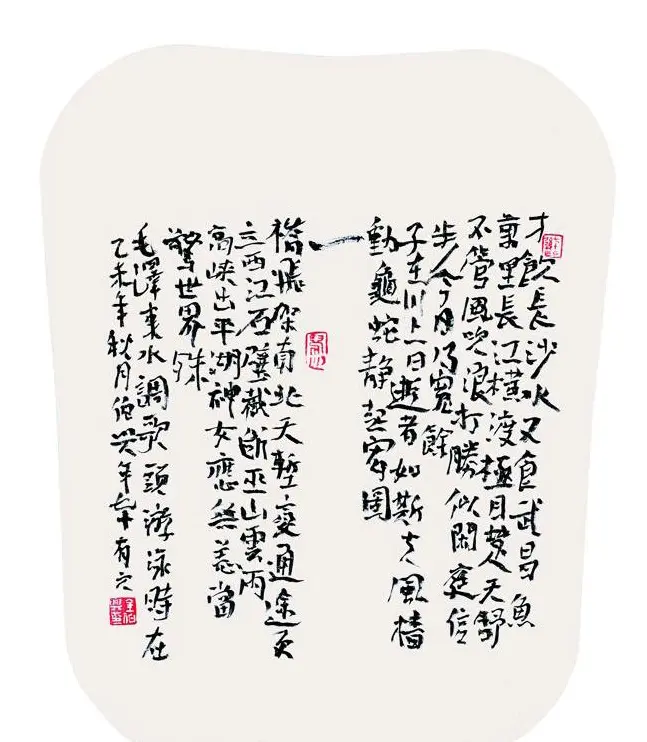 才飲長沙水又食武昌魚
萬里長江橫渡極目楚天舒
不管風吹浪打勝似閑庭信
步今日得寬餘
子在川上曰逝者如斯夫風檣
動龜蛇静起宏圖
一
橋飛架南北天塹變通途更
立西江石壁截斷巫山雲雨
高峽出平湖神女應無恙當
驚世界殊
毛澤東水調歌頭游泳時在
乙未年秋月伯年十有